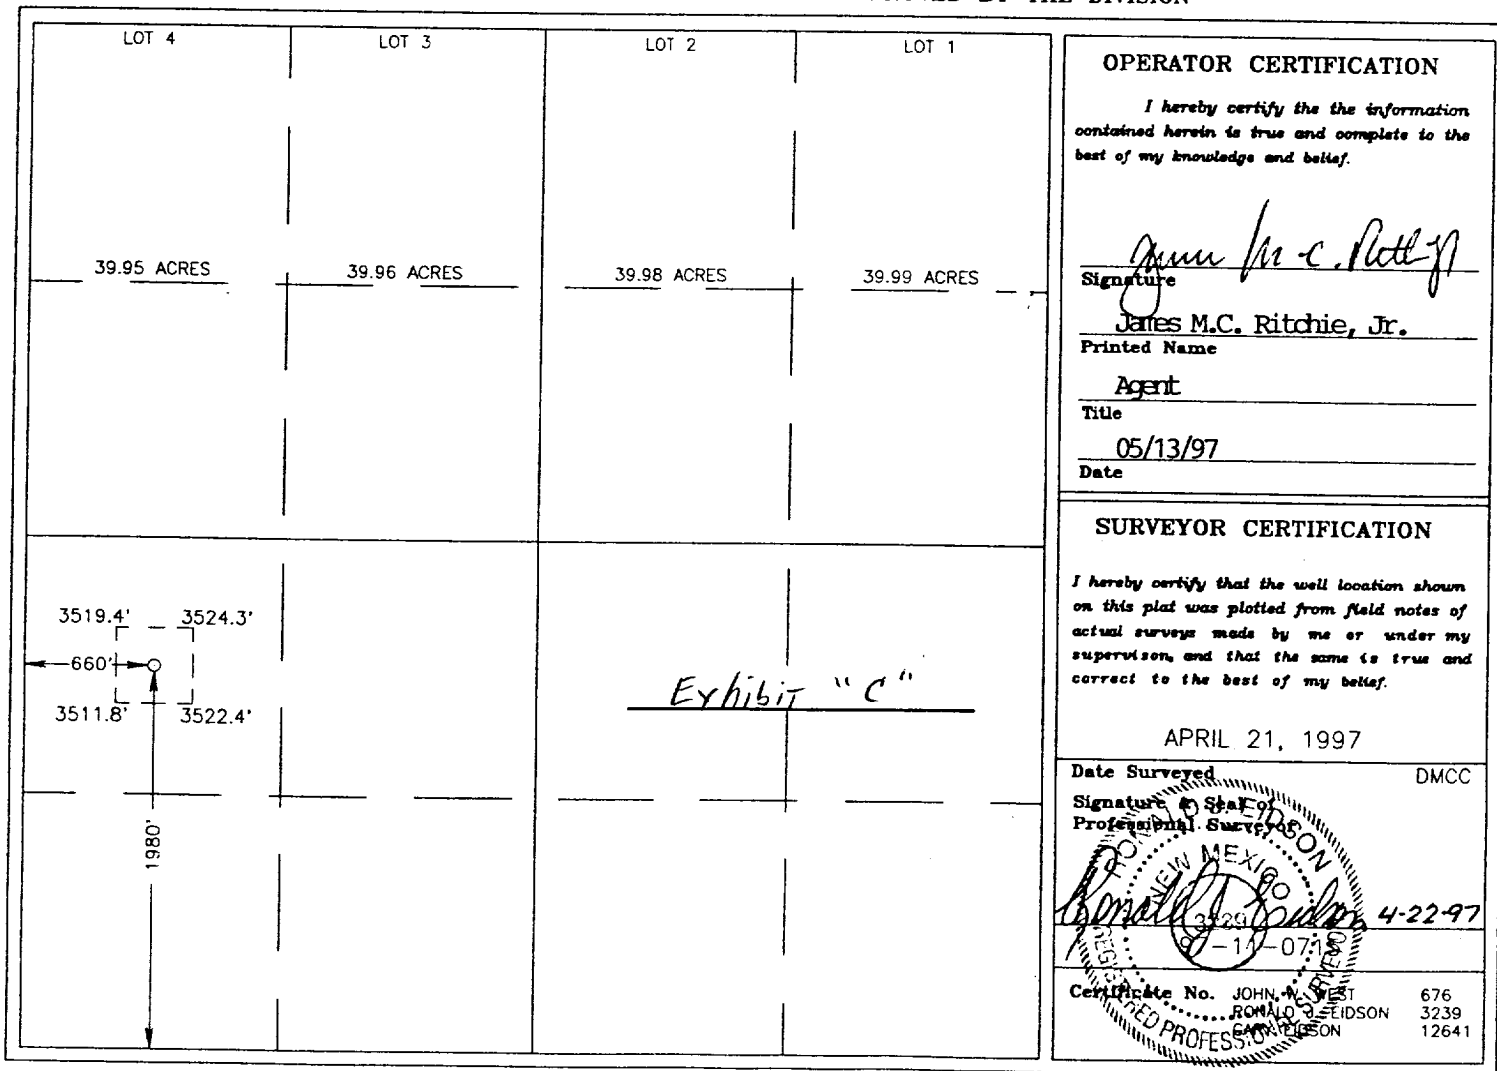 BY THE DIVISION
LOT 4 LOT 3 LOT 2 LOT 1
39.95 ACRES 39.96 ACRES 39.98 ACRES 39.99 ACRES
3519.4' 3524.3'
660'
3511.8' 3522.4'
1980'
Exhibit "C"
OPERATOR CERTIFICATION
I hereby certify the the information
contained herein is true and complete to the
best of my knowledge and belief.
Signature
James M.C. Ritchie, Jr.
Printed Name
Agent
Title
05/13/97
Date
SURVEYOR CERTIFICATION
I hereby certify that the well location shown
on this plat was plotted from field notes of
actual surveys made by me or under my
supervison, and that the same is true and
correct to the best of my belief.
APRIL 21, 1997
Date Surveyed DMCC
Signature & Seal of
Professional Surveyor
RONALD J. EIDSON
NEW MEXICO
3239
REGISTERED PROFESSIONAL SURVEYOR
Ronald J. Eidson 4-22-97
-11-071
Certificate No. JOHN W. WEST 676
RONALD J. EIDSON 3239
EIDSON 12641